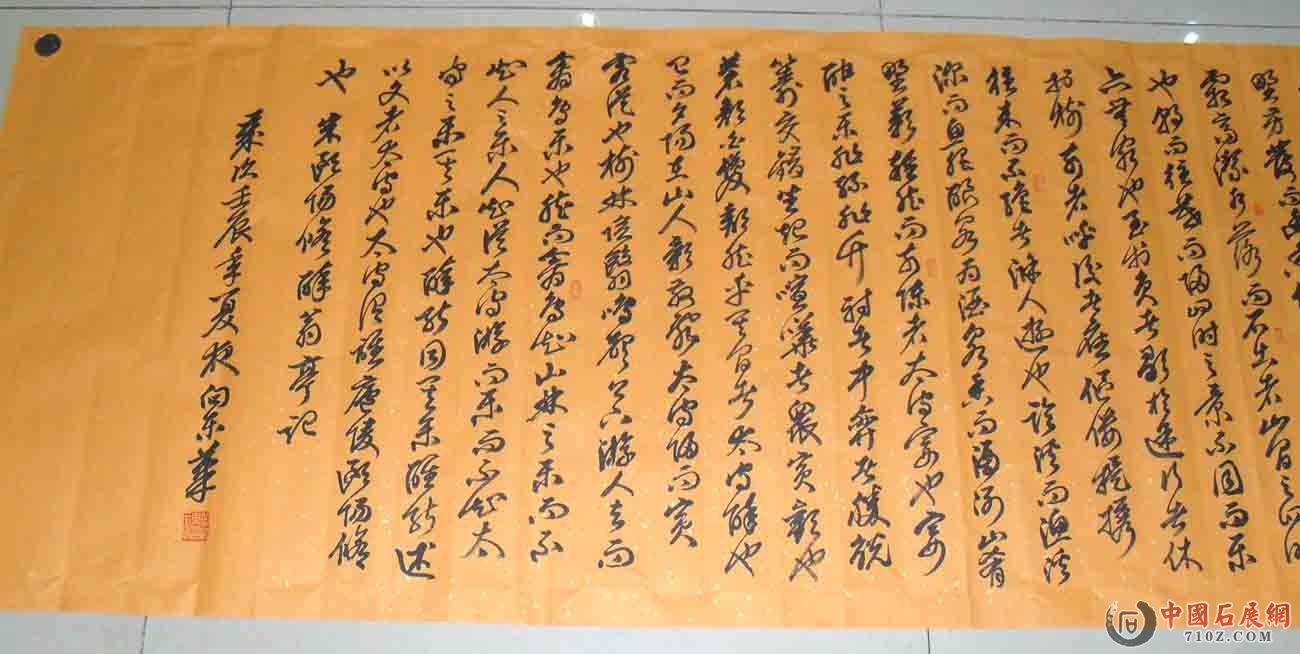 野芳發而幽香
霜高潔水落而石出者山間之四時
也朝而往暮而歸四時之景不同而樂
亦無窮也至於負者歌於途行者休
於樹前者呼後者應傴僂提攜
往來而不絕者滁人遊也臨溪而漁溪
深而魚肥釀泉為酒泉香而酒洌山肴
野蔌雜然而前陳者太守宴也宴
酣之樂非絲非竹射者中弈者勝觥
籌交錯坐起而喧嘩者眾賓歡也
蒼顏白髮頹然乎其間者太守醉也
已而夕陽在山人影散亂太守歸而賓
客從也樹林陰翳鳴聲上下游人去而
禽鳥樂也然而禽鳥知山林之樂而不
知人之樂人知從太守游而樂而不知太
守之樂其樂也醉能同其樂醒能述
以文者太守也太守謂誰廬陵歐陽脩
也 宋歐陽脩醉翁亭記
歲次壬辰年夏
中國石展網
710Z.COM